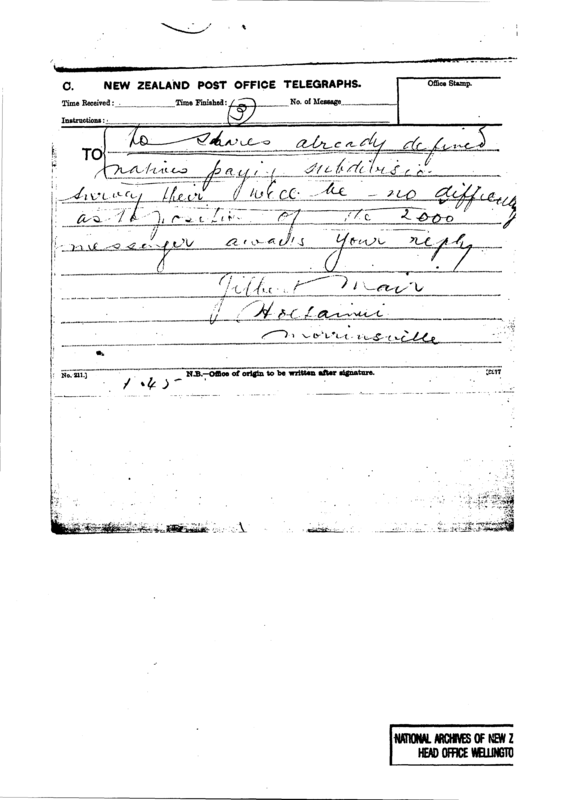 C. NEW ZEALAND POST OFFICE TELEGRAPHS.
Office Stamp.
Time Received: Time Finished: No. of Message
(3)
Instructions:
TO
to shares already defined
natives paying subdivision
survey their will be no difficulty
as to position of the 2000
messenger awaits your reply
Gilbert Mair
Morrinsville
No. 211.] N.B.—Office of origin to be written after signature.
1.45
NATIONAL ARCHIVES OF NEW Z
HEAD OFFICE WELLINGTO